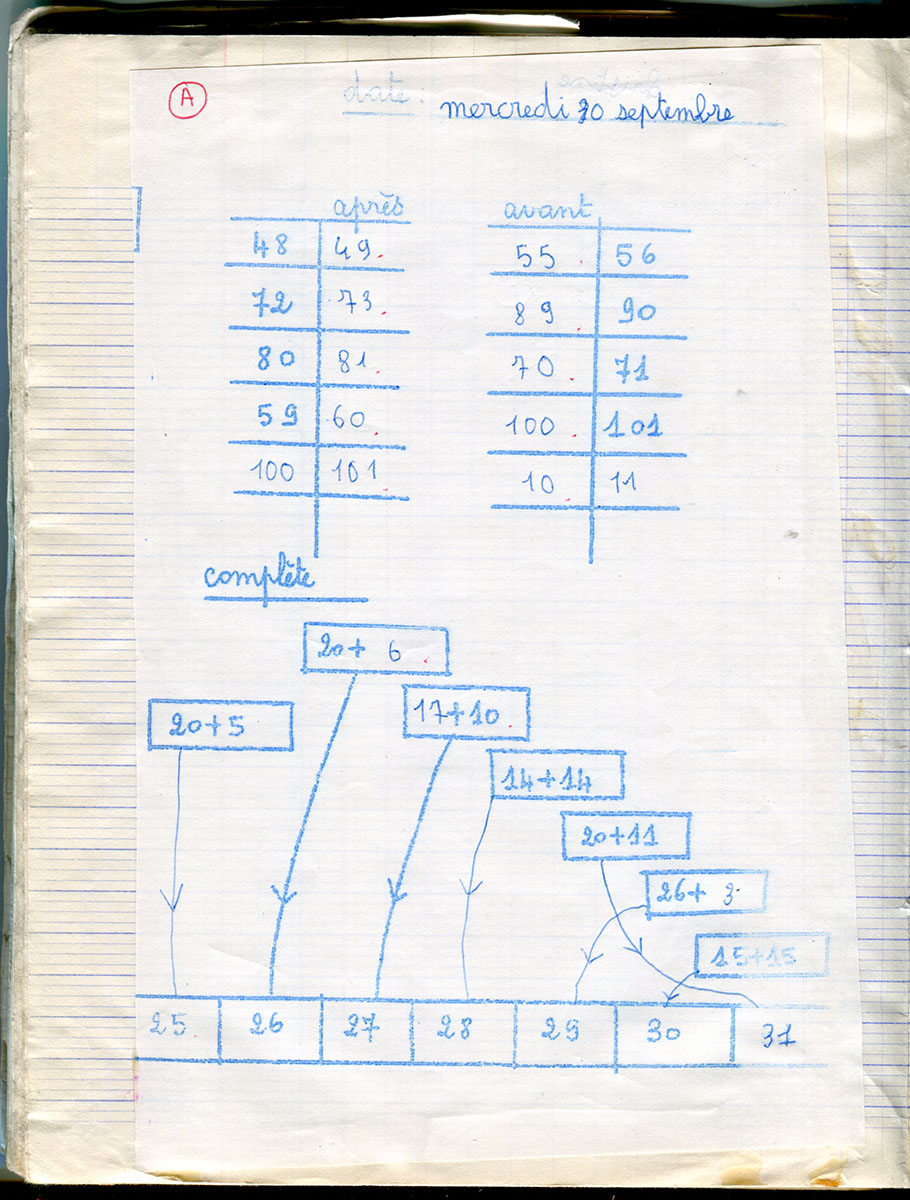 A
date: mercredi 20 septembre
après
48 49
72 73
80 81
59 60
100 101
avant
55 56
89 90
70 71
100 101
10 11
complète
20+ 6
20+5
17+10
14+14
20+11
26+ 3
15+15
25 26 27 28 29 30 31